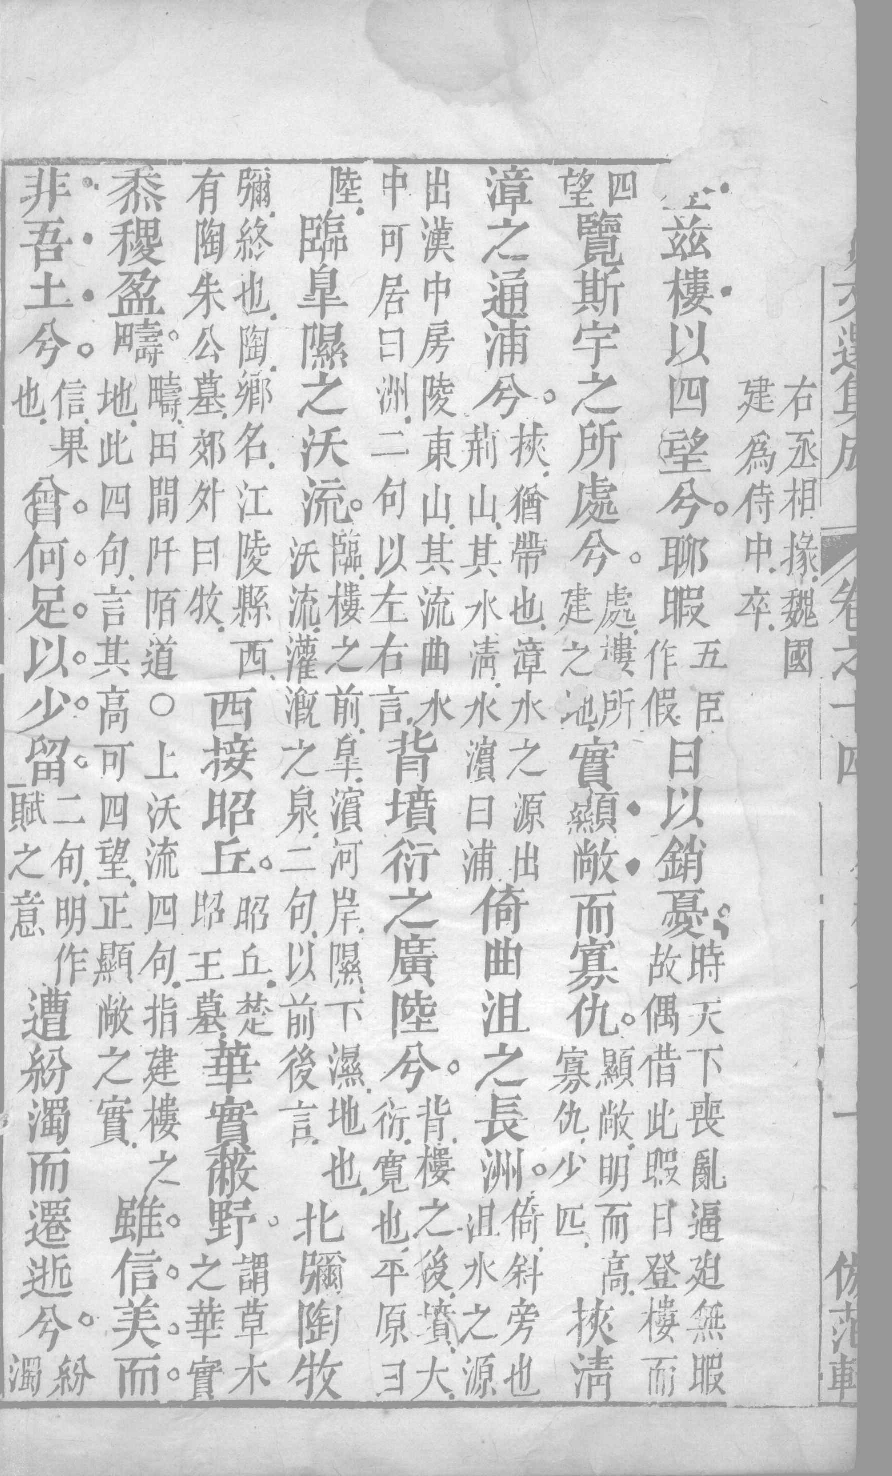 文選集成 卷之十四 一 倣范軒
右丞相掾魏國建爲侍中卒
兹樓以四望兮。聊暇五臣作假日以銷憂。時天下喪亂逼迫無暇故偶借此暇日登樓而
四望覽斯宇之所處兮。處樓所建之地實顯敞而寡仇。顯敞明而高寡仇少匹挾清
漳之通浦兮。挾猶帶也漳水之源出荆山其水清水濱曰浦倚曲沮之長洲。倚斜旁也沮水之源
出漢中房陵東山其流曲水中可居曰洲二句以左右言背墳衍之廣陸兮。背樓之後墳大衍寬也平原曰
陸臨皐隰之沃流。臨樓之前皐濱河岸隰下濕地也沃流灌漑之泉二句以前後言北彌陶牧
彌終也陶鄉名江陵縣西有陶朱公墓郊外曰牧西接昭丘。昭丘楚昭王墓華實蔽野。謂草木之華實
黍稷盈疇。疇田間阡陌道○上沃流四句指建樓之地此四句言其高可四望正顯敞之實雖信美而
非吾土兮。信果也曾何足以少留。二句明作賦之意遭紛濁而遷逝兮。紛濁